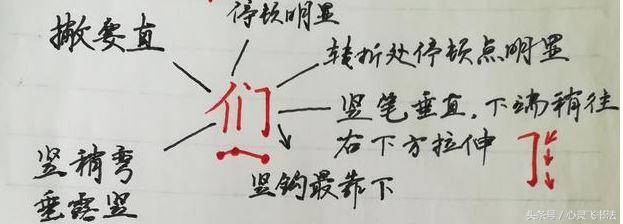 停顿明显
撇要直
转折处停顿点明显
们
竖笔垂直,下端稍往
右下方拉伸
竖稍弯
垂露竖
竖钩最靠下
头条号/心灵飞书法